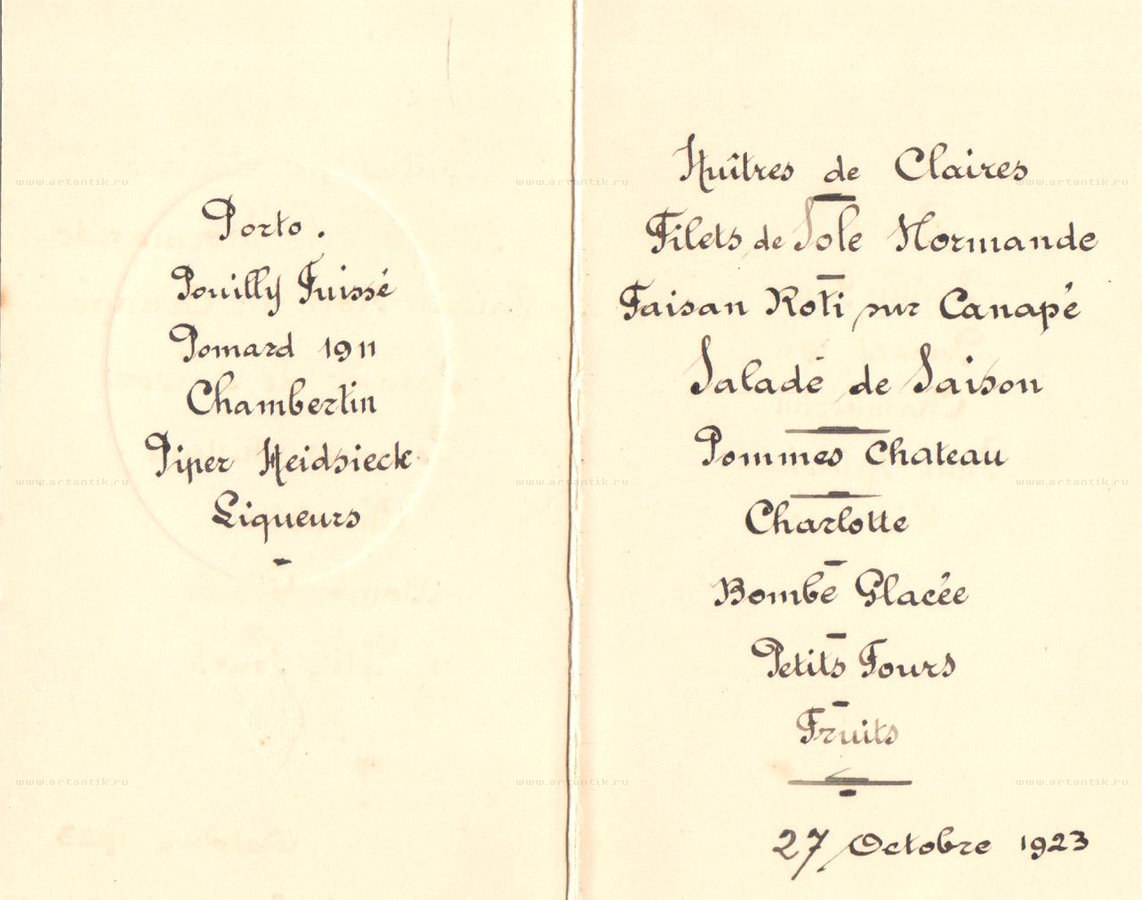 Porto.
Pouilly Fuissé
Pomard 1911
Chambertin
Piper Heidsieck
Liqueurs
Huîtres de Claires
Filets de Sole Normande
Faisan Roti sur Canapé
Saladé de Saison
Pommes Chateau
Charlotte
Bombe Glacée
Petits Fours
Fruits
27 Octobre 1923
www.artantik.ru